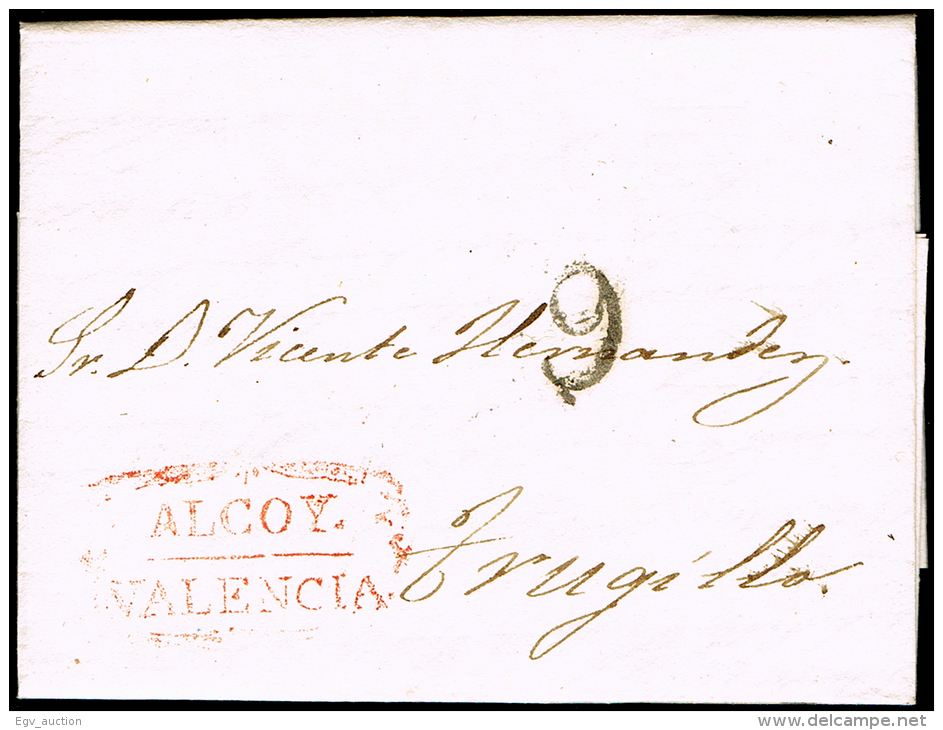 9
Sr. D. Vicente Hernandez.
ALCOY.
VALENCIA
Trugillo.
Egv_auction
delcampe.net